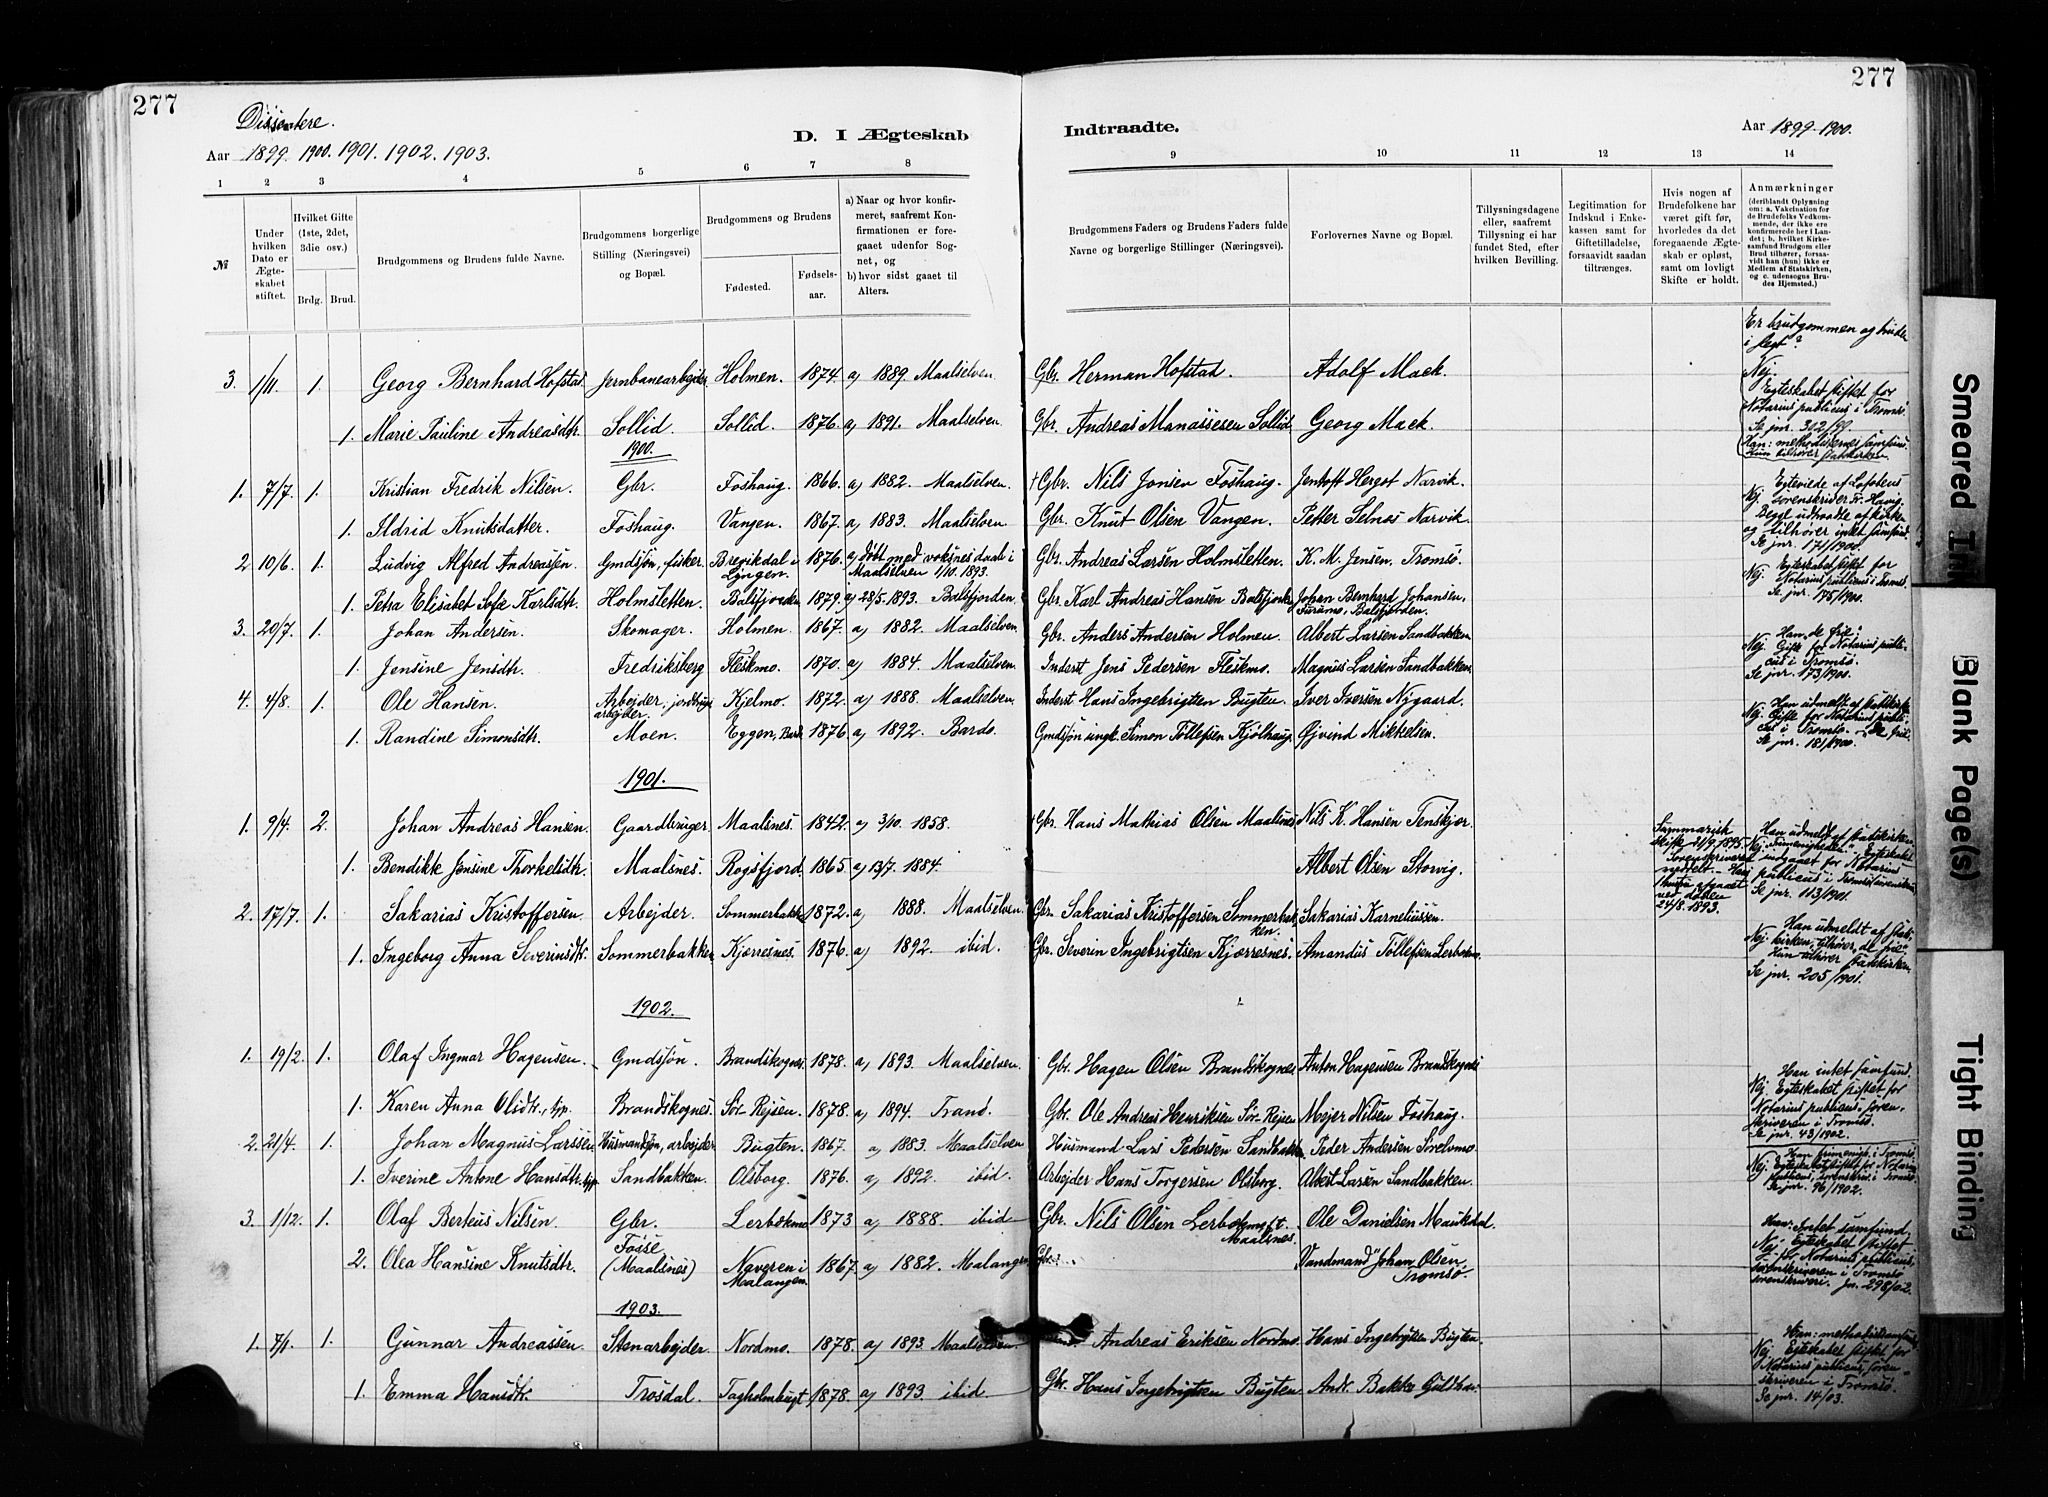 277
277
Dissentere.
D. I Ægteskab Indtraadte.
Aar 1899. 1900. 1901. 1902. 1903.
Aar 1899-1900.
1 2 3 4 5 6 7 8 9 10 11 12 13 14
№
Under hvilken Dato er Ægteskabet stiftet.
Hvilket Gifte (1ste, 2det, 3die osv.)
Brdg. Brud.
Brudgommens og Brudens fulde Navne.
Brudgommens borgerlige Stilling (Næringsvei) og Bopæl.
Brudgommens og Brudens
Fødested. Fødsels-aar.
a) Naar og hvor konfirmeret, saafremt Konfirmationen er foregaaet udenfor Sognet, og
b) hvor sidst gaaet til Alters.
Brudgommens Faders og Brudens Faders fulde Navne og borgerlige Stillinger (Næringsvei).
Forlovernes Navne og Bopæl.
Tillysningsdagene eller, saafremt Tillysning ei har fundet Sted, efter hvilken Bevilling.
Legitimation for Indskud i Enkekassen samt for Giftetilladelse, forsaavidt saadan tiltrænges.
Hvis nogen af Brudefolkene har været gift før, hvorledes da det foregaaende Ægteskab er opløst, samt om lovligt Skifte er holdt.
Anmærkninger
(deriblandt Oplysning om: a. Vakcination for de Brudefolks Vedkommende, der ikke ere konfirmerede her i Landet; b. hvilket Kirkesamfund Brudgom eller Brud tilhører, forsaavidt han (hun) ikke er Medlem af Statskirken, og c. udensogns Brudes Hjemsted.)
Er brudgommen og brude i slegt?
3. 1/11. 1. Georg Bernhard Hofstad Jernbanearbejder Holmen. 1874. a) 1889. Maalselven. Gbr. Herman Hofstad. Adolf Mack. Nej. Egteskabet stiftet for Notarius publicus i Tromsø. Se jnr. 302/99.
1. Marie Pauline Andreasdtr. Sollid. Sollid. 1876. a) 1891. Maalselven. Gbr. Andreas Manassesen Sollid. Georg Mack. Han: methodisternes samfund. Hun tilhører statskirken.
1900.
1. 7/7. 1. Kristian Fredrik Nilsen. Gbr. Foshaug. 1866. a) 1882. Maalselven. † Gbr. Nils Jonsen Foshaug. Jentoft Hergot Narvik. Nej. Egteviede af Lofotens sorenskriver Fr. Havig.
1. Ildrid Knutsdatter. Foshaug. Vangen. 1867. a) 1883. Maalselven. Gbr. Knut Olsen Vangen. Petter Selnes Narvik. Begge udtraadte af kirken og tilhører intet samfund. Se jnr. 171/1900.
2. 10/6. 1. Ludvig Alfred Andreassen. Gmdsjøn, fisker. Brevikdal i Lyngen. 1876. a) døbt med voksnes daab i Maalselven 1/10. 1893. Gbr. Andreas Larsen Holmsletten. K. M. Jensen, Tromsø. Nej. Egteskabet stiftet for Notarius publicus i Tromsø.
1. Petra Elisabet Sofie Karlsdtr. Holmsletten. Balsfjorden 1879. a) 28/5. 1893. Balsfjorden. Gbr. Karl Andreas Hansen Balsfjord. Johan Bernhard Johansen, Furumo, Balsfjorden. Se jnr. 175/1900.
3. 20/7. 1. Johan Andersen. Skomager. Holmen. 1867. a) 1882. Maalselven. Gbr. Anders Andersen Holmen. Albert Larsen Sandbakken Nej. Han „de frie“. Gifte for Notarius publicus i Tromsø.
1. Jensine Jensdtr. Fredriksberg Fleskmo. 1870. a) 1884. Maalselven. Inderst Jens Pedersen Fleskmo. Magnus Larsen Sandbakken. Se jnr. 173/1900.
4. 4/8. 1. Ole Hansen. Arbejder, Kjelmo. 1872. a) 1888. Maalselven. Inderst Hans Ingebrigtsen Bugten. Iver Iversen Nygaard. Nej. Han udmeldt af statskirken. Gifte for Notarius publicus i Tromsø.
1. Randine Simonsdtr. Moen. Eggen, Bard. 1876. a) 1892. Bardo. Gmdsjøn ungk. Simon Tollefsen Kjølhaug. Øjvind Mikkelsen. Se jnr. 181/1900.
1901.
1. 9/4. 2. Johan Andreas Hansen. Gaardbruger. Maalsnes. 1842. a) 3/10. 1858. † Gbr. Hans Mathias Olsen Maalsnes. Nils K. Hansen Tenskjær. Sammarisk skifte 21/9 1895. ved døden 24/8. 1893. Nej. Han udmeldt af statskirken. Egteskabet indgaaet for Notarius publicus i Tromsø
1. Bendikte Jensine Thorkelsdtr. Maalsnes. Rogsfjord. 1865. a) 13/7. 1884. Albert Olsen Storvig. Se jnr. 113/1901.
2. 17/7. 1. Sakarias Kristoffersen. Arbejder. Sommerbakk. 1872. a) 1888. Maalselven. Gbr. Sakarias Kristoffersen Sommerbakken. Sakarias Karneliussen. Nej. Han udmeldt af statskirken, tilhører „de frie“.
1. Ingeborg Anna Severinsdtr. Sommerbakken. Kjærresnes. 1876. a) 1892. ibid. Gbr. Severin Ingebrigtsen Kjærresnes. Amandus Tollefsen Hun tilhører statskirken. Se jnr. 205/1901.
1902.
1. 19/2. 1. Olaf Ingmar Hagensen. Gmdsjøn. Brandskognes. 1878. a) 1893. Maalselven. Gbr. Hagen Olsen Brandskognes Anton Hagensen Brandskognes Nej. Han intet samfund. Egteskabet stiftet for
1. Karen Anna Olsdtr., Brandskognes. Sør-Rejsen. 1878. a) 1894. Tranø. Gbr. Ole Andreas Henriksen Sør-Rejsen Mejer Nilsen Foshaug. Notarius publicus, sorenskriveren i Tromsø. Se jnr. 43/1902.
2. 21/4. 1. Johan Magnus Larssen. Husmandsøn, arbejder Bugten. 1867. a) 1883. Maalselven. Husmand Lars Pedersen Sandbakken. Peder Andersen Nej. Han frimenigh. i Tromsø. Egteskabet stiftet for Notarius
1. Iverine Antone Hansdtr. Sandbakken. Olsborg. 1876. a) 1892. ibid. Arbejder Hans Torgersen Olsborg. Albert Larsen Sandbakken. publicus, sorenskr. i Tromsø. Se jnr. 96/1902.
3. 1/12. 1. Olaf Berteus Nilsen. Gbr. Lerbækmo 1873 a) 1888. ibid. Gbr. Nils Olsen Lerbækmo ft. Maalsnes. Ole Danielsen Maukdal. Nej Han: Intet samfund. Egteskabet stiftet
2. Olea Hansine Knutsdtr. Fosse (Maalsnes) Naveren i Malangen. 1867. a) 1882. Malangen. Gbr. Vandmand Johan Olsen Tromsø. for Notarius publicus, sorenskriveren i Tromsø sorenskriveri. Jn. 298/02.
1903.
1. 7/1. 1. Gunnar Andreassen. Stenarbejder. Nordmo. 1878. a) 1893. Maalselven. Andreas Eriksen Nordmo. Hans Ingebrigtsen Bugten. Nej. Han: methodistsamfund. Egteskabet stiftet for
1. Emma Hansdtr. Trosdal. Tagholmbugt. 1878. a) 1893 ibid. Gbr. Hans Ingebrigtsen Bugten Andr. Bakke Notarius publicus, sorenskriveren i Tromsø. Se jnr. 14/03.
Smeared Ink
Blank Page(s)
Tight Binding